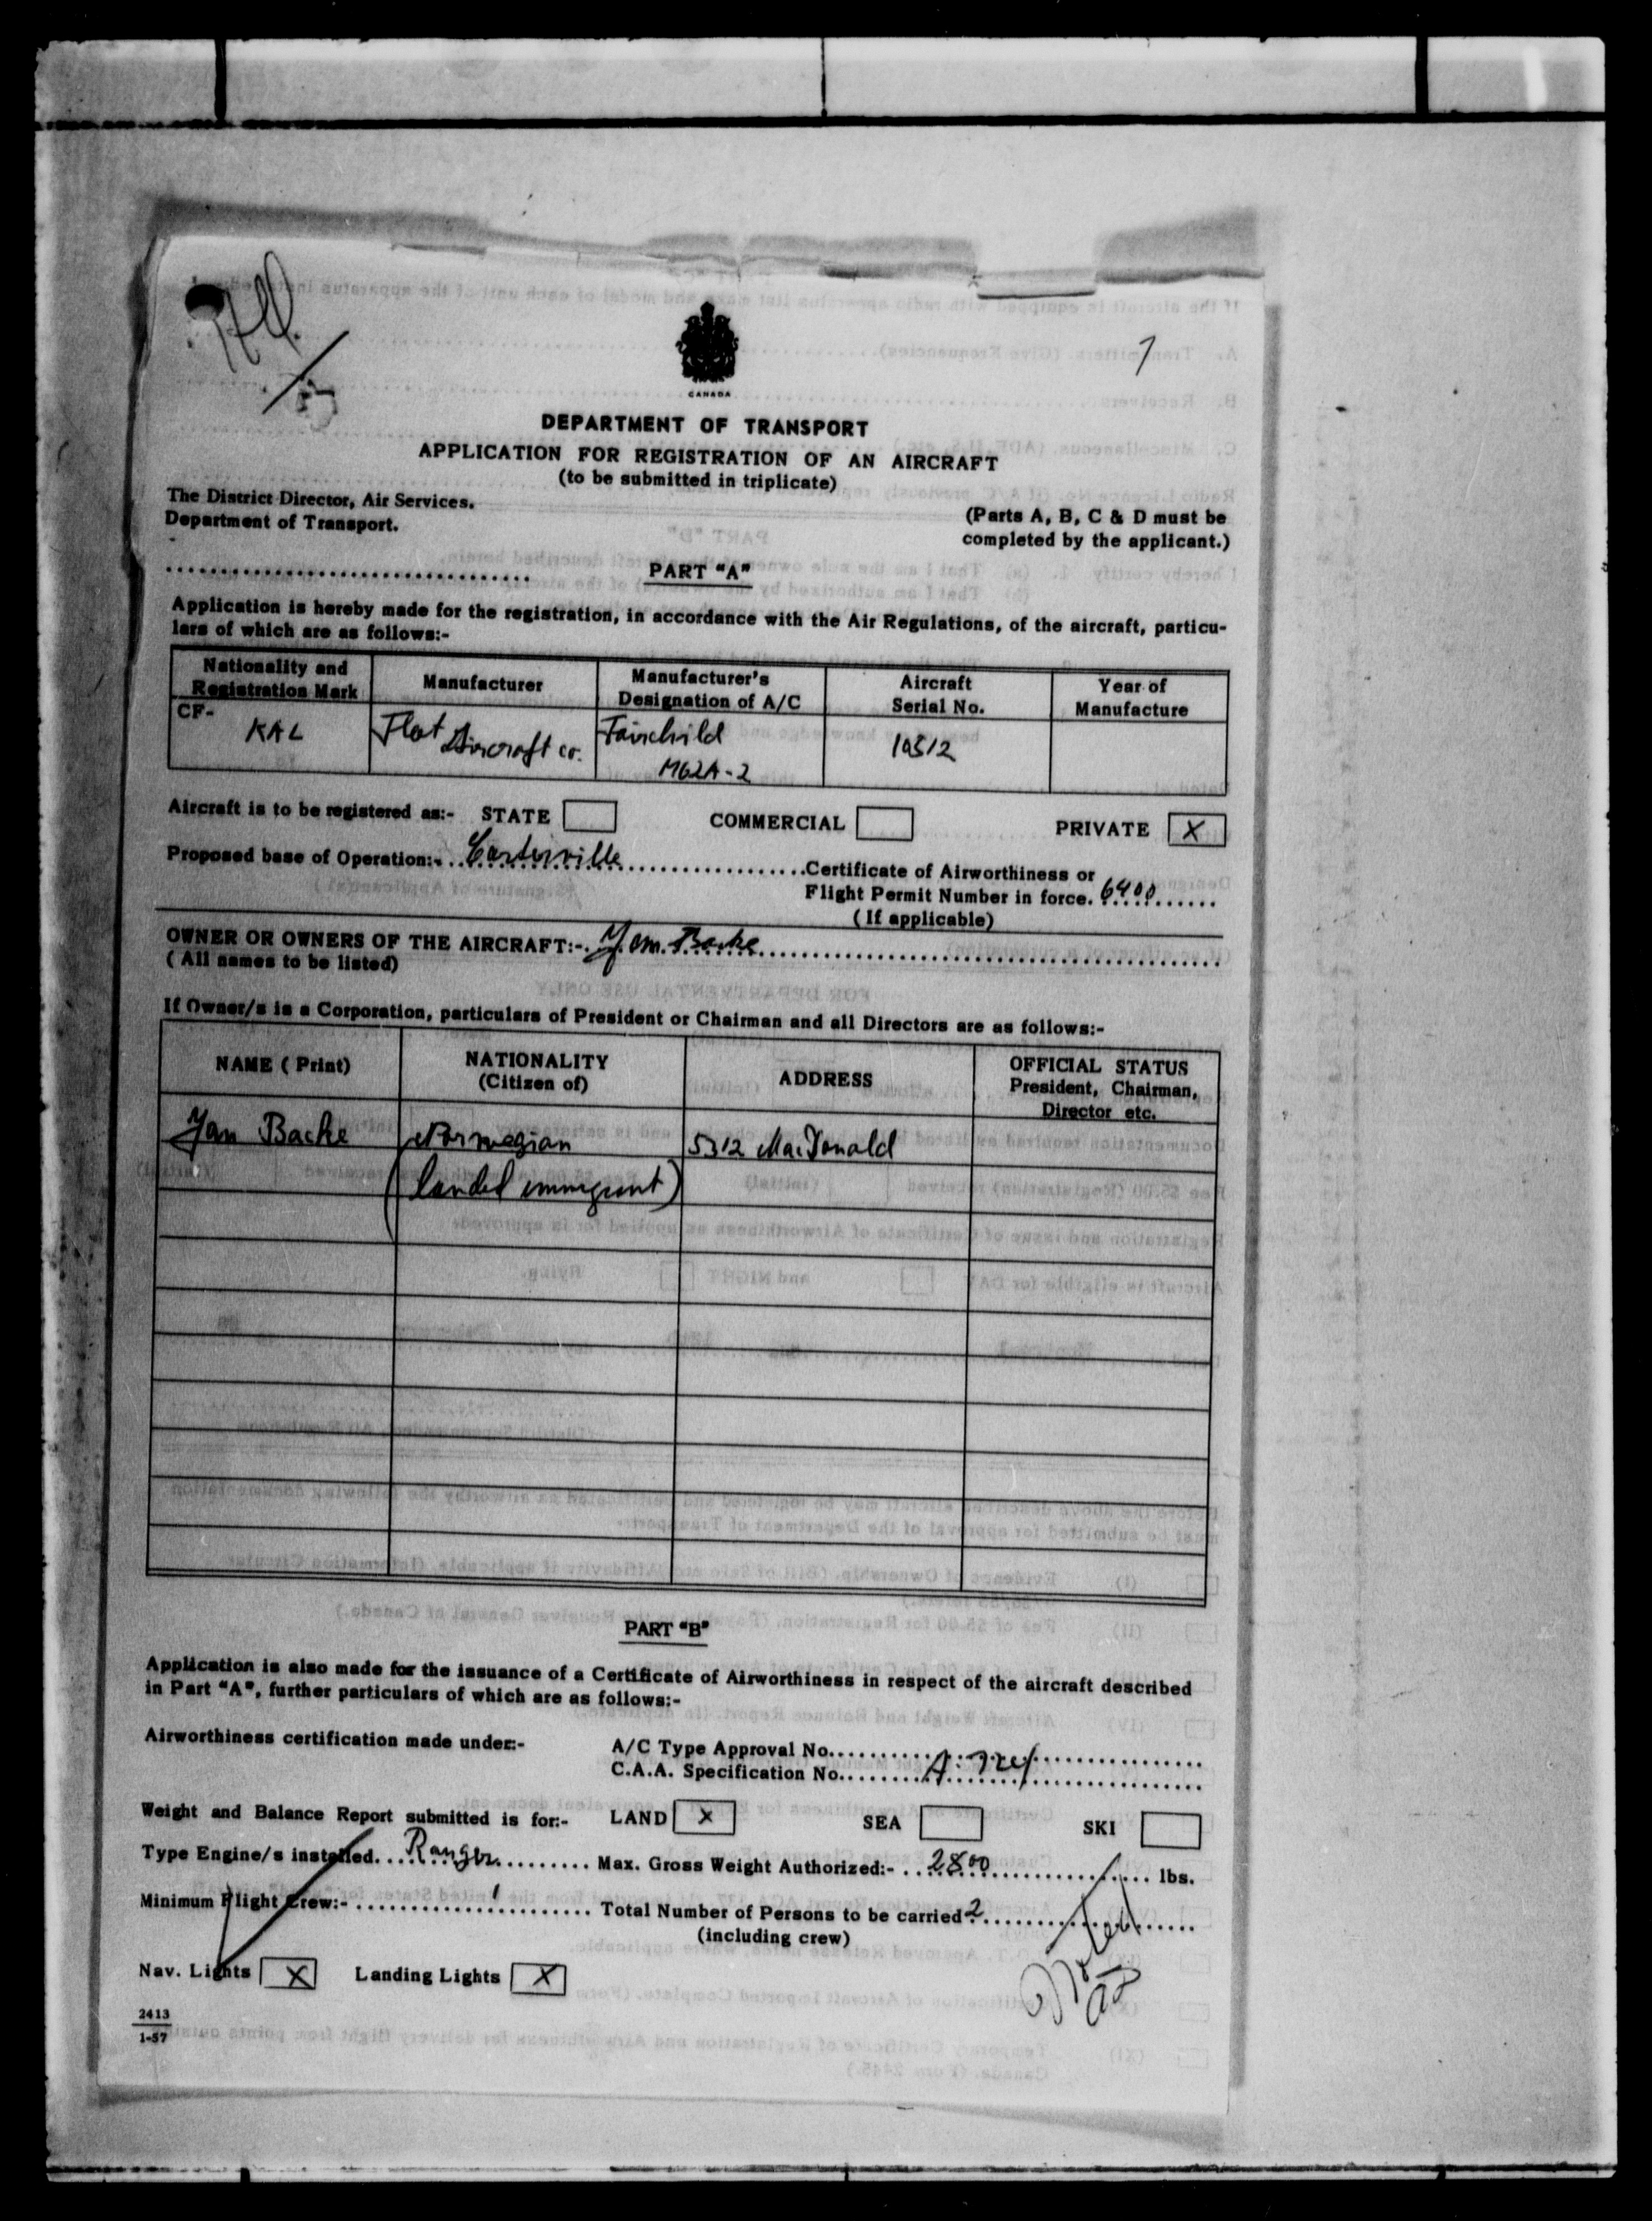 7
CANADA
DEPARTMENT OF TRANSPORT
APPLICATION FOR REGISTRATION OF AN AIRCRAFT
(to be submitted in triplicate)
The District Director, Air Services.
Department of Transport.
(Parts A, B, C & D must be
completed by the applicant.)
PART "A"
Application is hereby made for the registration, in accordance with the Air Regulations, of the aircraft, particu-
lars of which are as follows:-
Nationality and Registration Mark
Manufacturer
Manufacturer's Designation of A/C
Aircraft Serial No.
Year of Manufacture
CF- KAL
Aircraft co.
Fairchild M62A-2
Aircraft is to be registered as:- STATE COMMERCIAL PRIVATE X
Proposed base of Operation:- Cartierville
Certificate of Airworthiness or
Flight Permit Number in force. 6400
(If applicable)
OWNER OR OWNERS OF THE AIRCRAFT:- Backe
( All names to be listed)
If Owner/s is a Corporation, particulars of President or Chairman and all Directors are as follows:-
NAME ( Print)
NATIONALITY (Citizen of)
ADDRESS
OFFICIAL STATUS President, Chairman, Director etc.
Jan Backe Norwegian 5312 MacDonald
(landed immigrant)
PART "B"
Application is also made for the issuance of a Certificate of Airworthiness in respect of the aircraft described
in Part "A", further particulars of which are as follows:-
Airworthiness certification made under:-
A/C Type Approval No.
C.A.A. Specification No.
Weight and Balance Report submitted is for:- LAND X SEA SKI
Type Engine/s installed. Ranger Max. Gross Weight Authorized:- 2800 lbs.
Minimum Flight Crew:- 1 Total Number of Persons to be carried 2
(including crew)
Nav. Lights X Landing Lights X
2413
1-57